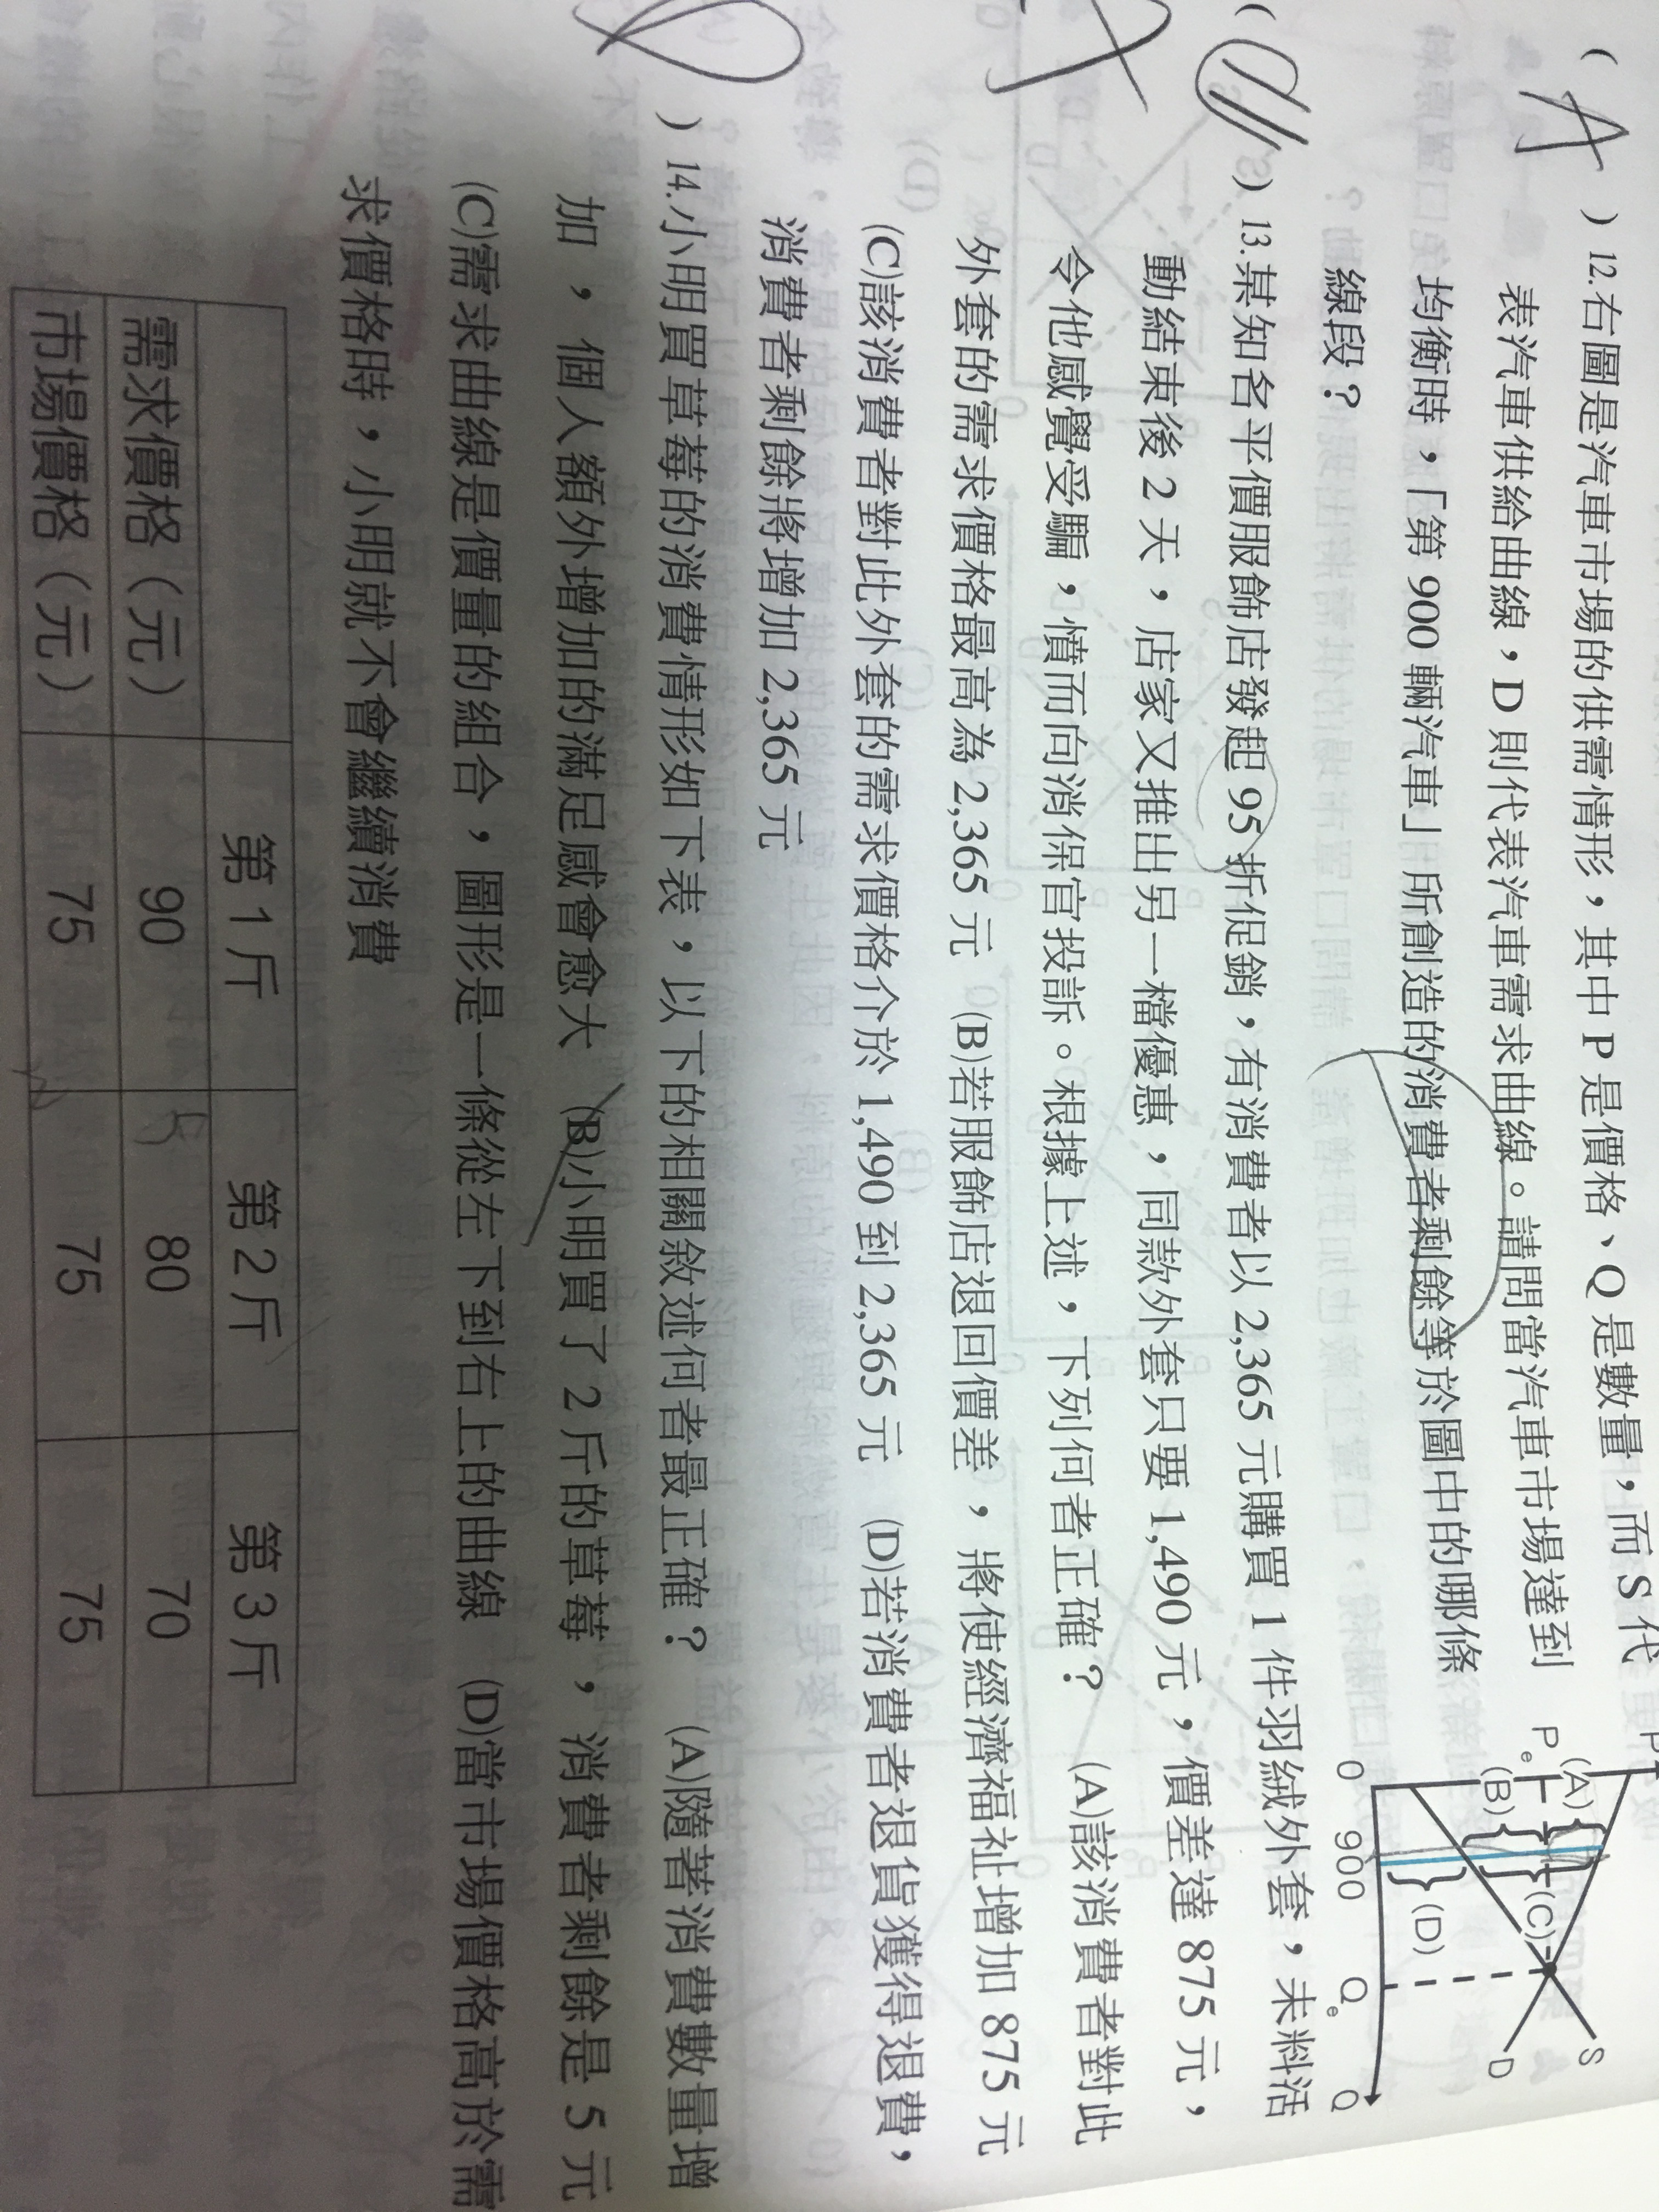 ( A ) 12.右圖是汽車市場的供需情形，其中 P 是價格、Q 是數量，而 S 代
表汽車供給曲線，D 則代表汽車需求曲線。請問當汽車市場達到
均衡時，「第 900 輛汽車」所創造的消費者剩餘等於圖中的哪條
線段？
P
(A)
Pe
(B)
(C)
(D)
S
D
0 900 Qe Q
( ) 13.某知名平價服飾店發起 95 折促銷，有消費者以 2,365 元購買 1 件羽絨外套，未料活
動結束後 2 天，店家又推出另一檔優惠，同款外套只要 1,490 元，價差達 875 元，
令他感覺受騙，憤而向消保官投訴。根據上述，下列何者正確？ (A)該消費者對此
外套的需求價格最高為 2,365 元 (B)若服飾店退回價差，將使經濟福祉增加 875 元
(C)該消費者對此外套的需求價格介於 1,490 到 2,365 元 (D)若消費者退貨獲得退費，
消費者剩餘將增加 2,365 元
) 14.小明買草莓的消費情形如下表，以下的相關敘述何者最正確？ (A)隨著消費數量增
加，個人額外增加的滿足感會愈大 (B)小明買了 2 斤的草莓，消費者剩餘是 5 元
(C)需求曲線是價量的組合，圖形是一條從左下到右上的曲線 (D)當市場價格高於需
求價格時，小明就不會繼續消費
第 1 斤 第 2 斤 第 3 斤
需求價格（元） 90 80 70
市場價格（元） 75 75 75